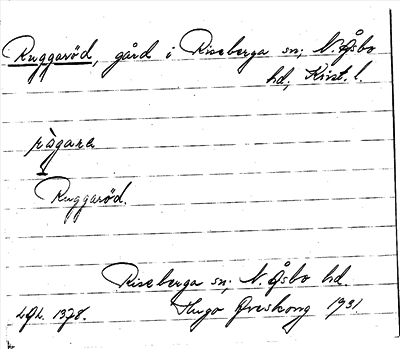 Ruggaröd, gård i Riseberga sn; N. Åsbo
hd, Krist. l.
rågara
Ruggaröd.
Riseberga sn; N. Åsbo hd
Hugo Areskoug 1931